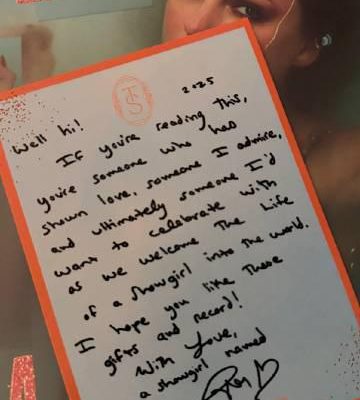 TS
2025
Well hi!
If you're reading this,
you're someone who has
shown love, someone I admire,
and ultimately someone I'd
want to celebrate with
as we welcome The Life
of a Showgirl into the world.
I hope you like these
gifts and record!
With Love,
a showgirl named